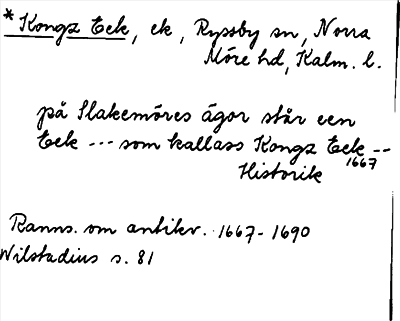 * Kongz Eek, ek, Ryssby sn, Norra
Möre hd, Kalm. l.
på Slakemöres ägor står een
Eek --- som kallass Kongz Eek --
1667
Historik
Ranns. om antikv. 1667-1690
Wilstadius s. 81